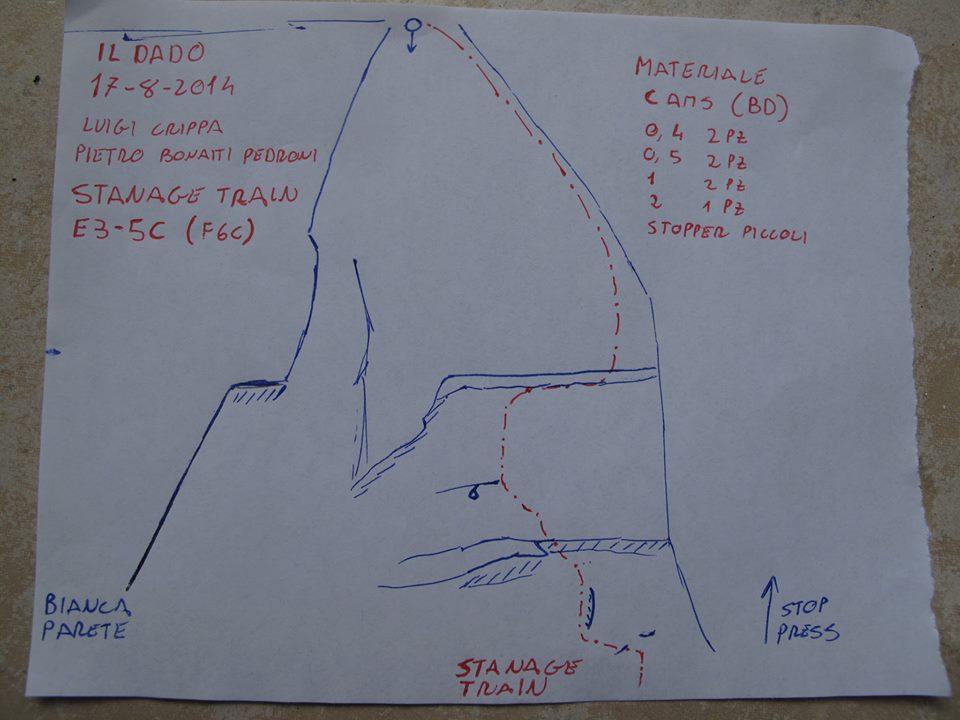 IL DADO
17-8-2014
LUIGI CRIPPA
PIETRO BONAITI PEDRONI
STANAGE TRAIN
E3-5C (F6C)
MATERIALE
CAMS (BD)
0,4 2 PZ
0,5 2 PZ
1 2 PZ
2 1 PZ
STOPPER PICCOLI
BIANCA
PARETE
STOP
PRESS
STANAGE
TRAIN